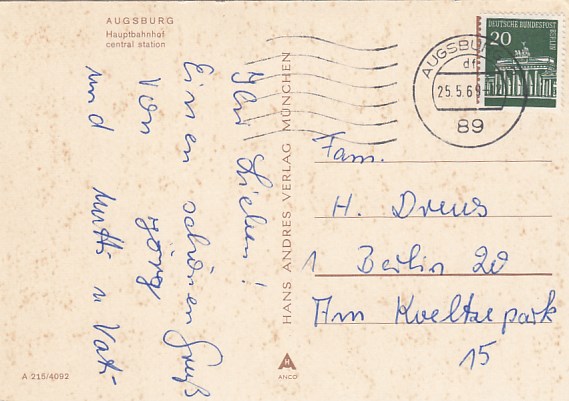 AUGSBURG
Hauptbahnhof
central station
Ihr Lieben!
Einen schönen Gruß
von Jörg
und Mutti u Vati
HANS ANDRES VERLAG MÜNCHEN
DEUTSCHE BUNDESPOST
BERLIN
20
AUGSBURG
df
25.5.69
89
Fam.
H. Drews
1 Berlin 20
Am Koeltzepark
15
A 215/4092
H
ANCO